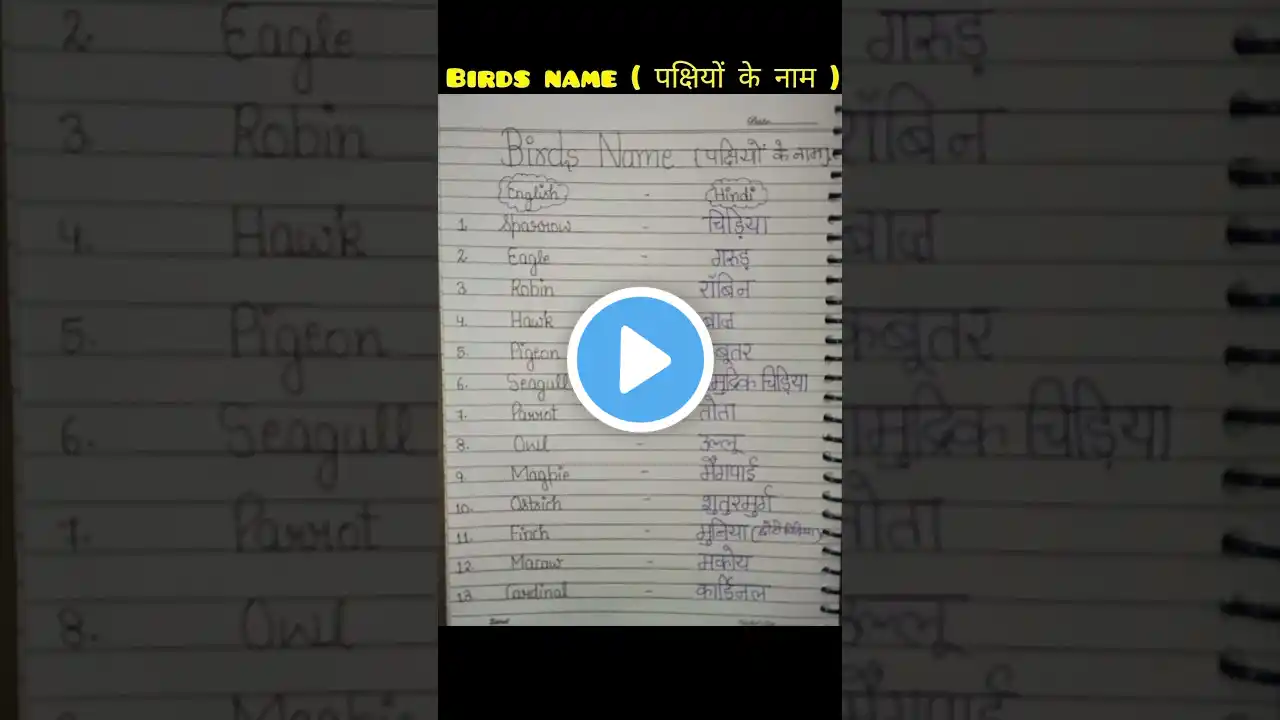 BIRDS NAME ( पक्षियों के नाम )
Date
Birds Name (पक्षियों के नाम)
English - Hindi
1. Sparrow - चिड़िया
2. Eagle - गरुड़
3. Robin रॉबिन
4. Hawk बाज
5. Pigeon बूतर
6. Seagull मुद्रिक चिड़िया
7. Parrot तोता
8. Owl - उल्लू
9. Magpie - मैगपाई
10. Ostrich - शुतुरमुर्ग
11. Finch - मुनिया
12. Macaw - मकोय
13. Cardinal - कार्डिनल
2. Eagle गरुड़
3. Robin रॉबिन
4. Hawk बाज
5. Pigeon कबूतर
6. Seagull मुद्रिक चिड़िया
7. Parrot तोता
8. Owl उल्लू